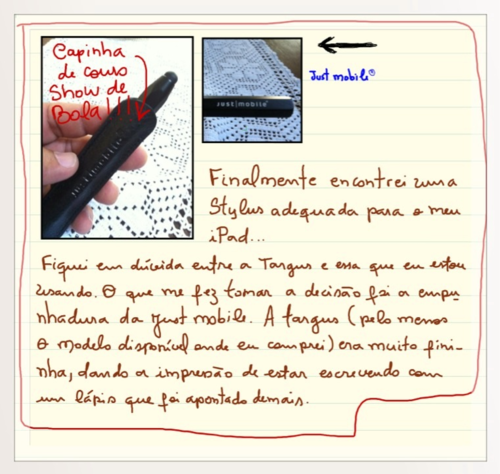 Capinha
de couro
Show de
Bola!!!
just|mobile
Just|mobile
Just mobile®
Finalmente encontrei uma
Stylus adequada para o meu
iPad...
Fiquei em dúvida entre a Targus e essa que eu estou
usando. O que me fez tomar a decisão foi a empu-
nhadura da just mobile. A targus (pelo menos
o modelo disponível onde eu comprei) era muito fini-
nha, dando a impressão de estar escrevendo com
um lápis que foi apontado demais.